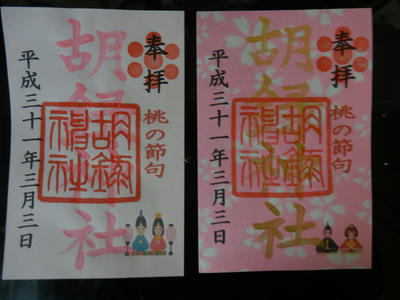 奉拝
桃の節句
胡録神社
平成三十一年三月三日
奉拝
桃の節句
胡録神社
平成三十一年三月三日